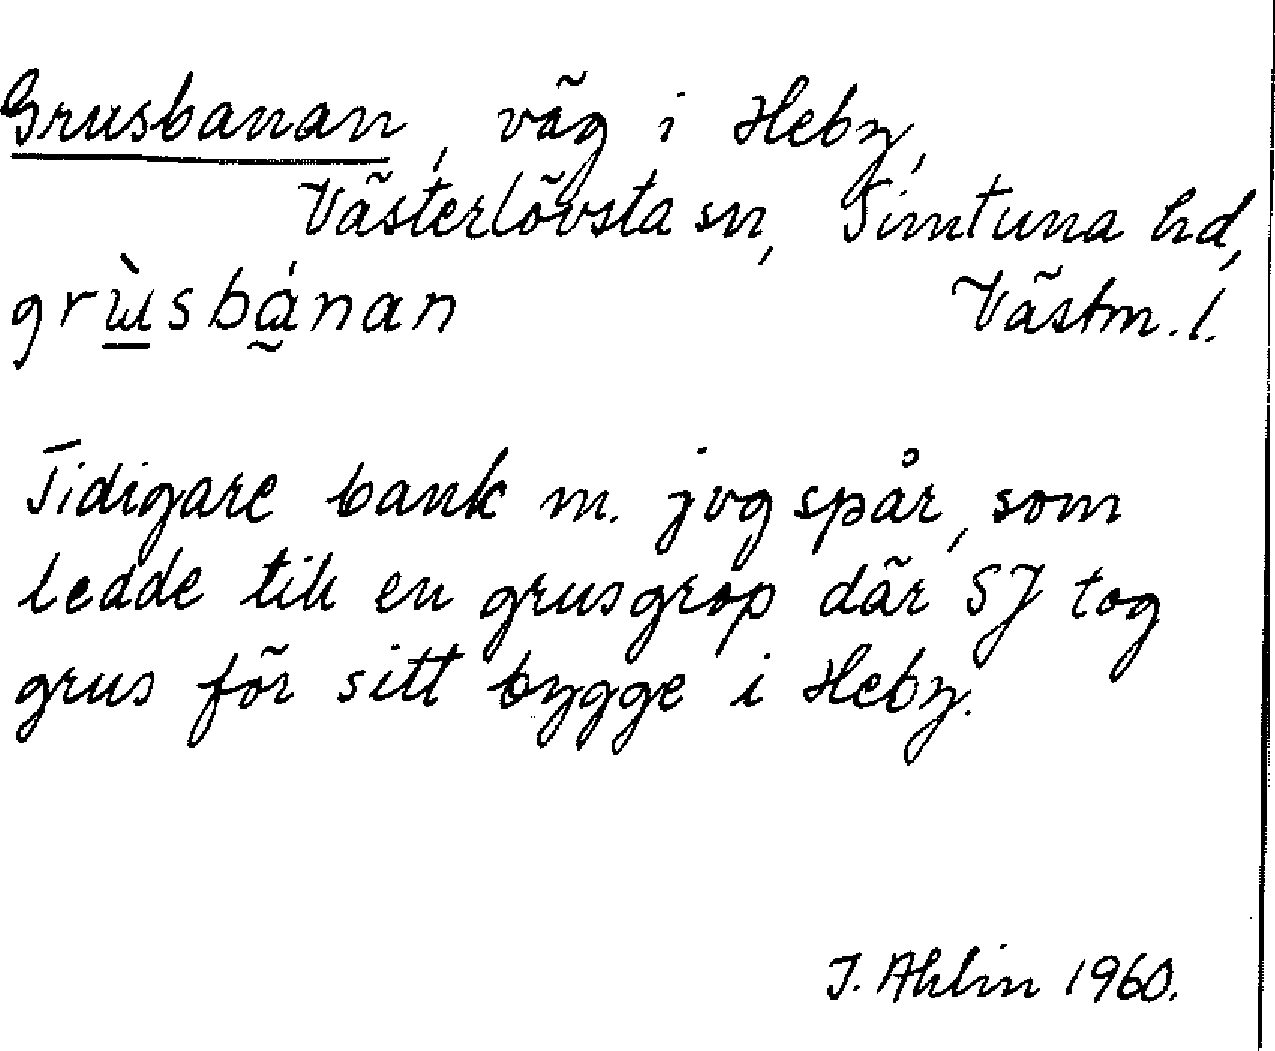 Grusbanan, väg i Heby,
Västerlövsta sn, Simtuna hd,
grùsbánan Västm. l.
Tidigare bank m. jvgspår, som
ledde till en grusgrop där SJ tog
grus för sitt bygge i Heby.
I. Ahlin 1960.